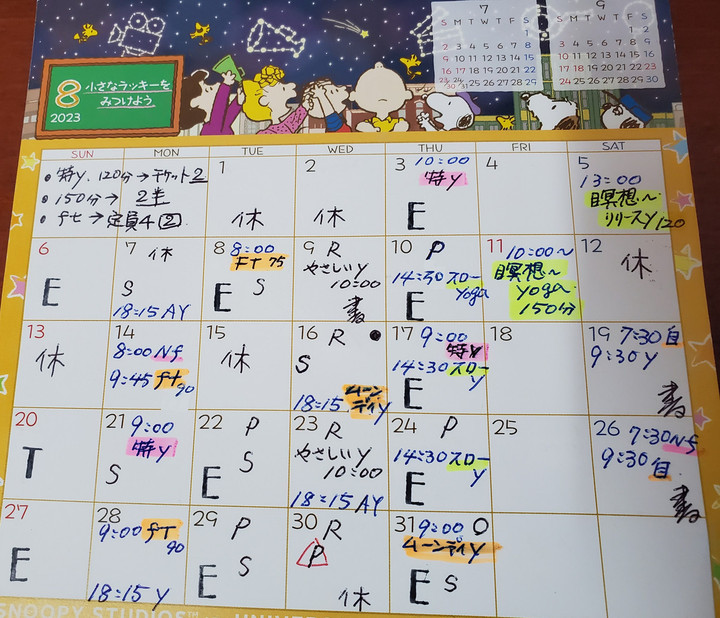 7
S M T W T F S
1
2 3 4 5 6 7 8
9 10 11 12 13 14 15
16 17 18 19 20 21 22
23/30 24/31 25 26 27 28 29
9
S M T W T F S
1 2
3 4 5 6 7 8 9
10 11 12 13 14 15 16
17 18 19 20 21 22 23
24 25 26 27 28 29 30
8
2023
小さなラッキーを
みつけよう
SUN MON TUE WED THU FRI SAT
• 特y. 120分→チケット2
• 150分→ 2半
• ft→定員4 ②
1
休
2
休
3 10:00
特y
E
4
5
13:00
瞑想~
リリースy120
6
E
7 休
S
18:15 AY
8 8:00
FT 75
E S
9 R
やさしいy
10:00
10 P
14:30 スロー
yoga
E
11 10:00~
瞑想~
yoga
150分
12
休
13
休
14
8:00 Nf
9:45 ft 90
15
休
16 R ●
S
18:15 ムーン
デイy
17 9:00
特y
14:30 スロー
y
E
18
19 7:30 自
9:30 y
20
T
21
9:00
特y
S
22 P
E S
23 R
やさしいy
10:00
18:15 AY
24 P
14:30 スロー
y
E
25
26 7:30 Nf
9:30 自
27
E
28
9:00 fT
90
18:15 y
29 P
E S
30 R
P
休
31 9:00 O
ムーンデイy
E S
SNOOPY STUDIOS™